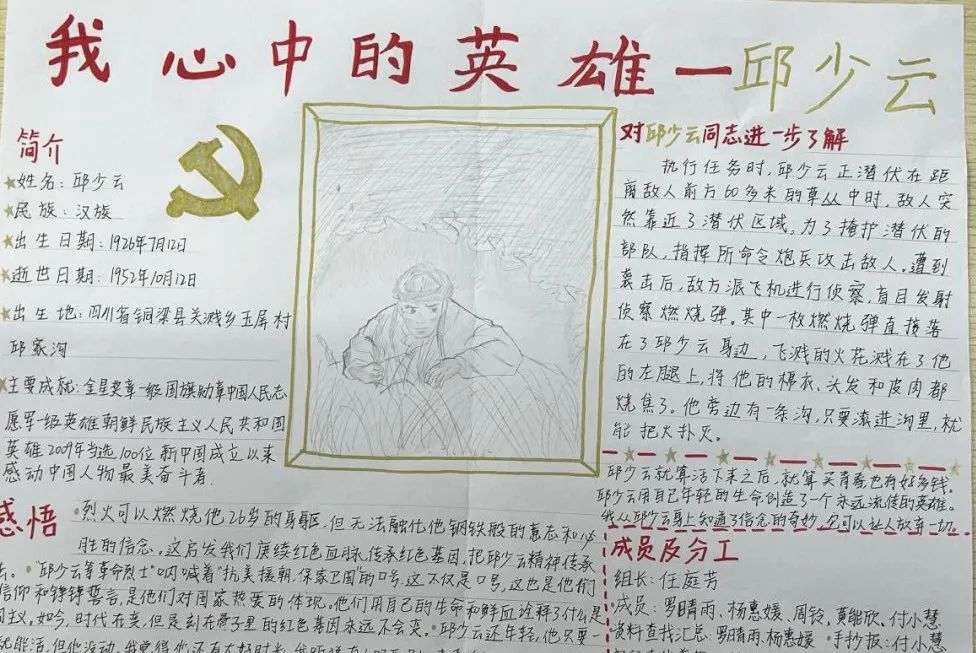 我心中的英雄—邱少云
简介
姓名：邱少云
民族：汉族
出生日期：1926年7月12日
逝世日期：1952年10月12日
出生地：四川省铜梁县关溅乡玉屏村
邱家沟
主要成就：金星奖章一级国旗勋章中国人民志
愿军一级英雄朝鲜民族主义人民共和国
英雄2009年当选100位新中国成立以来
感动中国人物最美奋斗者.
对邱少云同志进一步了解
执行任务时,邱少云正潜伏在距
离敌人前方60多米的草丛中时,敌人突
然靠近了潜伏区域,为了掩护潜伏的
部队,指挥所命令炮兵攻击敌人。遭到
袭击后,敌方派飞机进行侦察,盲目发射
侦察燃烧弹。其中一枚燃烧弹直接落
在了邱少云身边,飞溅的火花溅在了他
的左腿上,将他的棉衣、头发和皮肉都
烧焦了。他旁边有一条沟,只要滚进沟里,就
能把火扑灭。
邱少云就算活下来之后,就算买青春也有好多钱。
邱少云用自己年轻的生命创造了一个永远流传的英雄。
我从邱少云身上知道了信念的奇妙,它可以让人放弃一切。
感悟
烈火可以燃烧他26岁的身躯,但无法融化他钢铁般的意志和必
胜的信念。这启发我们赓续红色血脉,传承红色基因,把邱少云精神传承
去。"邱少云等革命烈士"呐喊着"抗美援朝,保家卫国"的口号,这不仅是口号,这也是他们
信仰和铮铮誓言,是他们对国家热爱的体现。他们用自己的生命和鲜血诠释了什么是
如今,时代在变,但是刻在骨子里的红色基因永远不会变。邱少云还年轻,他只要一
就能活,但他没动,我觉得他还有大好时光
成员及分工
组长：任庭芳
成员：罗晴雨、杨惠媛、周铃、黄能欣、付小慧
资料查找汇总：罗晴雨、杨惠媛 手抄报：付小慧